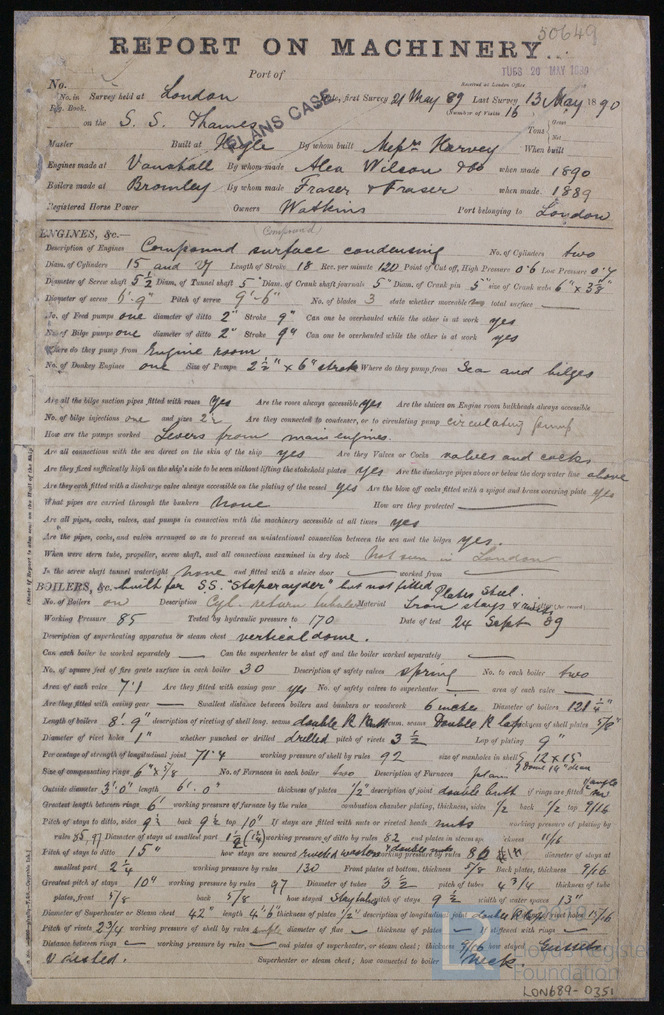 50649
REPORT ON MACHINERY.
Port of
TUES 20 MAY 1890
Received at London Office
No.
No. in Survey held at London Date, first Survey 21 May 89 Last Survey 13 May 1890
Reg. Book. (Number of Visits 16
on the S. S. Thames Tons Gross Net
Master Built at Hayle By whom built Messrs Harvey When built
Engines made at Vauxhall By whom made Alex Wilson & Co when made 1890
Boilers made at Bromley By whom made Fraser & Fraser when made 1889
Registered Horse Power Owners Watkins Port belonging to London
ENGINES, &c.— Compound
Description of Engines Compound surface condensing No. of Cylinders two
Diam. of Cylinders 15 and 27 Length of Stroke 18 Rev. per minute 120 Point of Cut off, High Pressure 0.6 Low Pressure 0.7
Diameter of Screw shaft 5 1/2 Diam. of Tunnel shaft 5" Diam. of Crank shaft journals 5" Diam. of Crank pin 5" size of Crank webs 6" x 3 3/8"
Diameter of screw 6'-9" Pitch of screw 9'-6" No. of blades 3 state whether moveable No total surface
No. of Feed pumps one diameter of ditto 2" Stroke 9" Can one be overhauled while the other is at work yes
No. of Bilge pumps one diameter of ditto 2" Stroke 9" Can one be overhauled while the other is at work yes
Where do they pump from Engine room
No. of Donkey Engines one Size of Pumps 2 1/2" x 6" stroke Where do they pump from Sea and bilges
Are all the bilge suction pipes fitted with roses Yes Are the roses always accessible yes Are the sluices on Engine room bulkheads always accessible
No. of bilge injections one and sizes 2 1/2 Are they connected to condenser, or to circulating pump circulating pump
How are the pumps worked Levers from main engines.
Are all connections with the sea direct on the skin of the ship yes Are they Valves or Cocks valves and cocks
Are they fixed sufficiently high on the ship's side to be seen without lifting the stokehold plates yes Are the discharge pipes above or below the deep water line above
Are they each fitted with a discharge valve always accessible on the plating of the vessel yes Are the blow off cocks fitted with a spigot and brass covering plate yes
What pipes are carried through the bunkers None How are they protected
Are all pipes, cocks, valves, and pumps in connection with the machinery accessible at all times yes
Are the pipes, cocks, and valves arranged so as to prevent an unintentional connection between the sea and the bilges yes.
When were stern tube, propeller, screw shaft, and all connections examined in dry dock Not seen in London
Is the screw shaft tunnel watertight None and fitted with a sluice door worked from
BOILERS, &c. built for S.S. but not fitted Plates Steel.
No. of Boilers one Description Cyl. return tubular Material Iron stays & rivets
Working Pressure 85 Tested by hydraulic pressure to 170 Date of test 24 Sept 89
Description of superheating apparatus or steam chest vertical dome.
Can each boiler be worked separately Can the superheater be shut off and the boiler worked separately
No. of square feet of fire grate surface in each boiler 30 Description of safety valves spring No. to each boiler two
Area of each valve 7.1 Are they fitted with easing gear yes No. of safety valves to superheater area of each valve
Are they fitted with easing gear Smallest distance between boilers and bunkers or woodwork 6 inches Diameter of boilers 121 1/4"
Length of boilers 8'-9" description of riveting of shell long. seams double R Butt circum. seams Double R lap thickness of shell plates 5/8"
Diameter of rivet holes 1" whether punched or drilled drilled pitch of rivets 3 1/2 Lap of plating 9"
Percentage of strength of longitudinal joint 71.4 working pressure of shell by rules 92 size of manholes in shell 12 x 15
Size of compensating rings 6" x 5/8 No. of Furnaces in each boiler two Description of Furnaces plain
Outside diameter 3'.0" length 6'.0" thickness of plates 1/2" description of joint double butt if rings are fitted
Greatest length between rings 6' working pressure of furnace by the rules combustion chamber plating, thickness, sides 1/2 back 1/2 top 9/16
Pitch of stays to ditto, sides 9 1/2 back 9 1/2 top 10" If stays are fitted with nuts or riveted heads nuts working pressure of plating by
rules 85.97 Diameter of stays at smallest part working pressure of ditto by rules 82 end plates in steam space thickness 11/16
Pitch of stays to ditto 15" how stays are secured riveted washers & double nuts working pressure by rules diameter of stays at
smallest part 2 1/4 working pressure by rules 130 Front plates at bottom, thickness 5/8 Back plates, thickness 9/16
Greatest pitch of stays 10" working pressure by rules 97 Diameter of tubes 3 1/2 pitch of tubes 4 3/4 thickness of tube
plates, front 5/8 back 5/8 how stayed Stay tubes pitch of stays 9 1/2 width of water spaces 13"
Diameter of Superheater or Steam chest 42" length 4'.6" thickness of plates 1/2" description of longitudinal joint double R lap
Pitch of rivets 2 3/4 working pressure of shell by rules diameter of flue thickness of plates If stiffened with rings
Distance between rings working pressure by rules end plates of superheater, or steam chest; thickness 9/16 how stayed Gussets
Superheater or steam chest; how connected to boiler Neck
Lloyd's Register
Foundation
LON689-0351